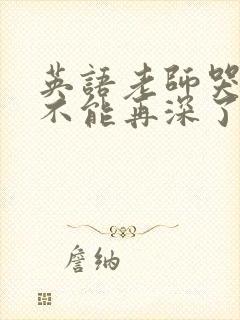 英語老師哭
不能再深了
詹納